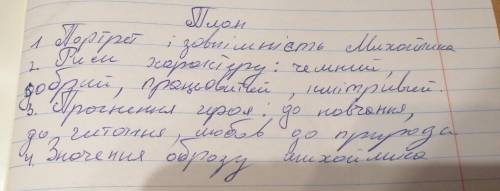 План
1. Портрет і зовнішність Михайлика
2. Риси характеру: чемний,
добрий, працьовитий, кмітливий.
3. Прагнення героя: до навчання,
до читання, любов до природи
4. Значення образу Михайлика